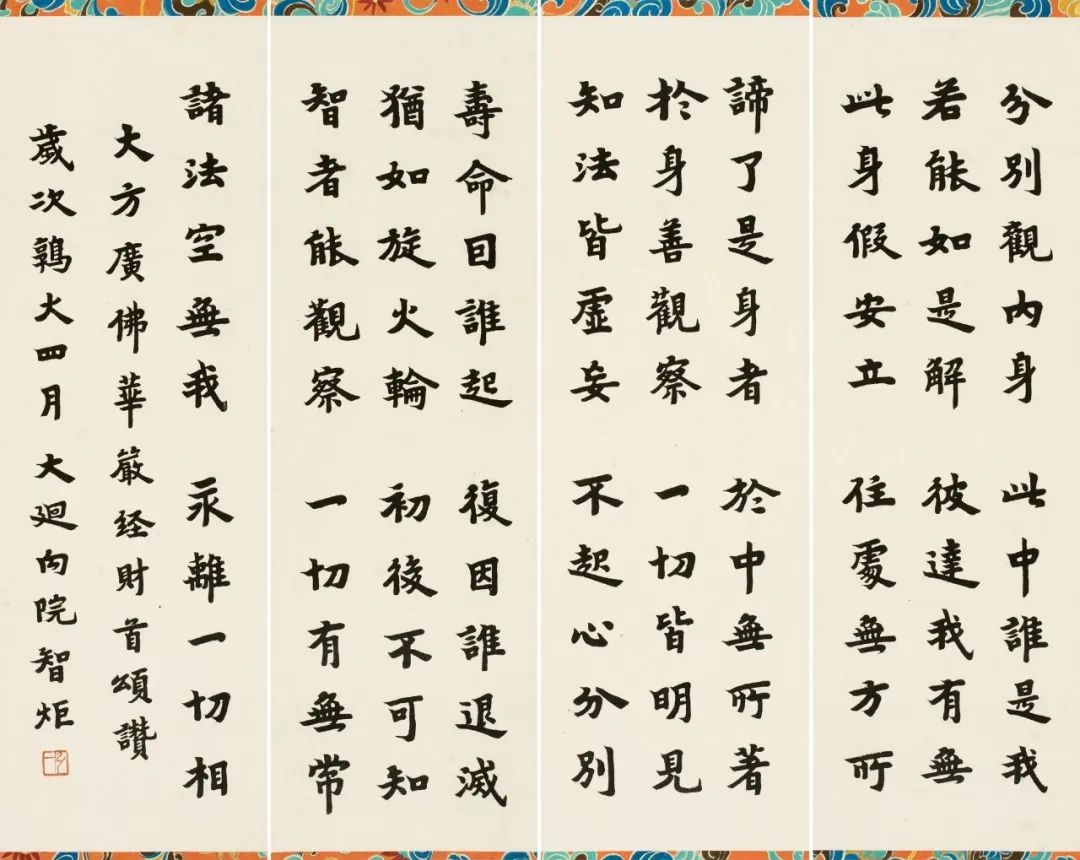 分別觀内身 此中誰是我
若能如是解 彼達我有無
此身假安立 住處無方所
諦了是身者 於中無所著
於身善觀察 一切皆明見
知法皆虛妄 不起心分別
壽命囙誰起 復因誰退滅
猶如旋火輪 初後不可知
智者能觀察 一切有無常
諸法空無我 永離一切相
大方廣佛華嚴经財首頌讚
歲次鶉火四月大廻向院智炬